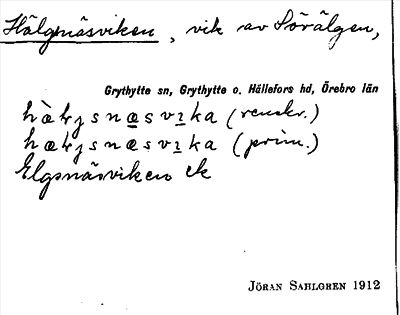 Hälgnäsviken, vik av Sörälgen,
Grythytte sn, Grythytte o. Hällefors hd, Örebro län
hæ̀lgsnæsvıka (renskr.)
hælgsnæsvıka (prim.)
Elgsnäsviken ek
JÖRAN SAHLGREN 1912